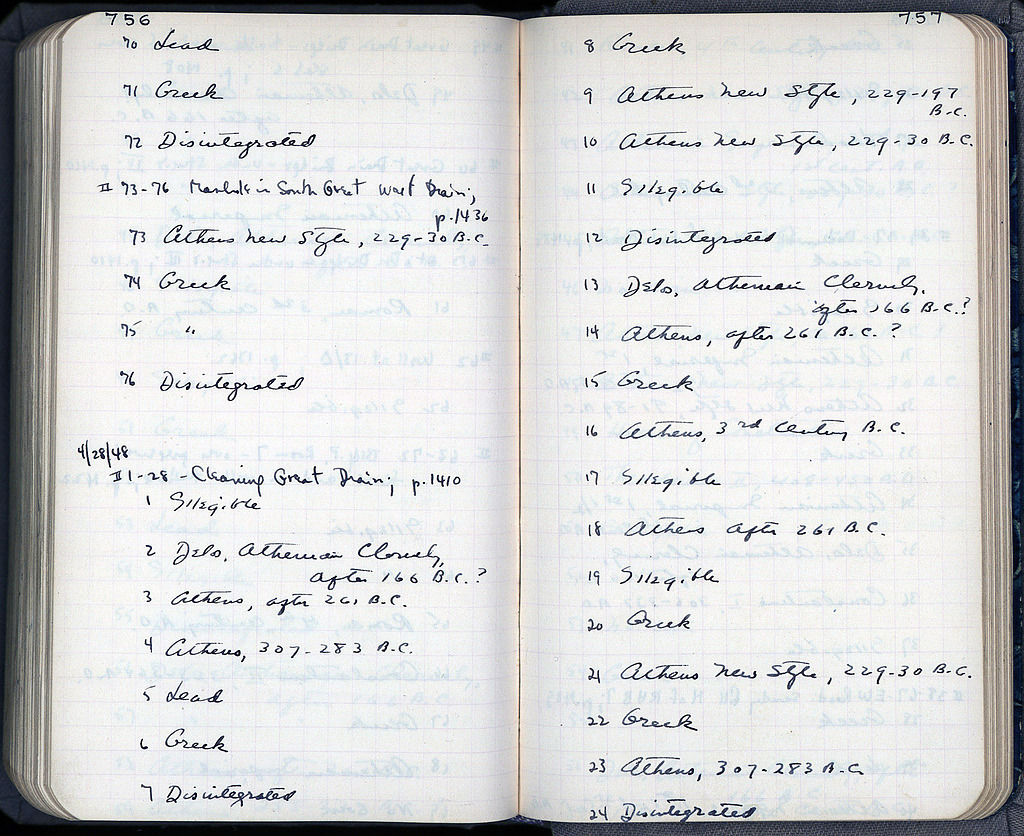 756
70 Lead
71 Greek
72 Disintegrated
II 73-76 Manhole in South Great West Drain;
p. 1436
73 Athens New Style, 229-30 B.C.
74 Greek
75 "
76 Disintegrated
4/28/48
II 1-28 Cleaning Great Drain; p. 1410
1 Illegible
2 Delos, Athenian Cleruchy,
after 166 B.C.?
3 Athens, after 261 B.C.
4 Athens, 307-283 B.C.
5 Lead
6 Greek
7 Disintegrated
757
8 Greek
9 Athens New Style, 229-197
B.C.
10 Athens New Style, 229-30 B.C.
11 Illegible
12 Disintegrated
13 Delos, Athenian Cleruchy,
after 166 B.C.?
14 Athens, after 261 B.C.?
15 Greek
16 Athens, 3rd Century B.C.
17 Illegible
18 Athens after 261 B.C.
19 Illegible
20 Greek
21 Athens New Style, 229-30 B.C.
22 Greek
23 Athens, 307-283 B.C.
24 Disintegrated